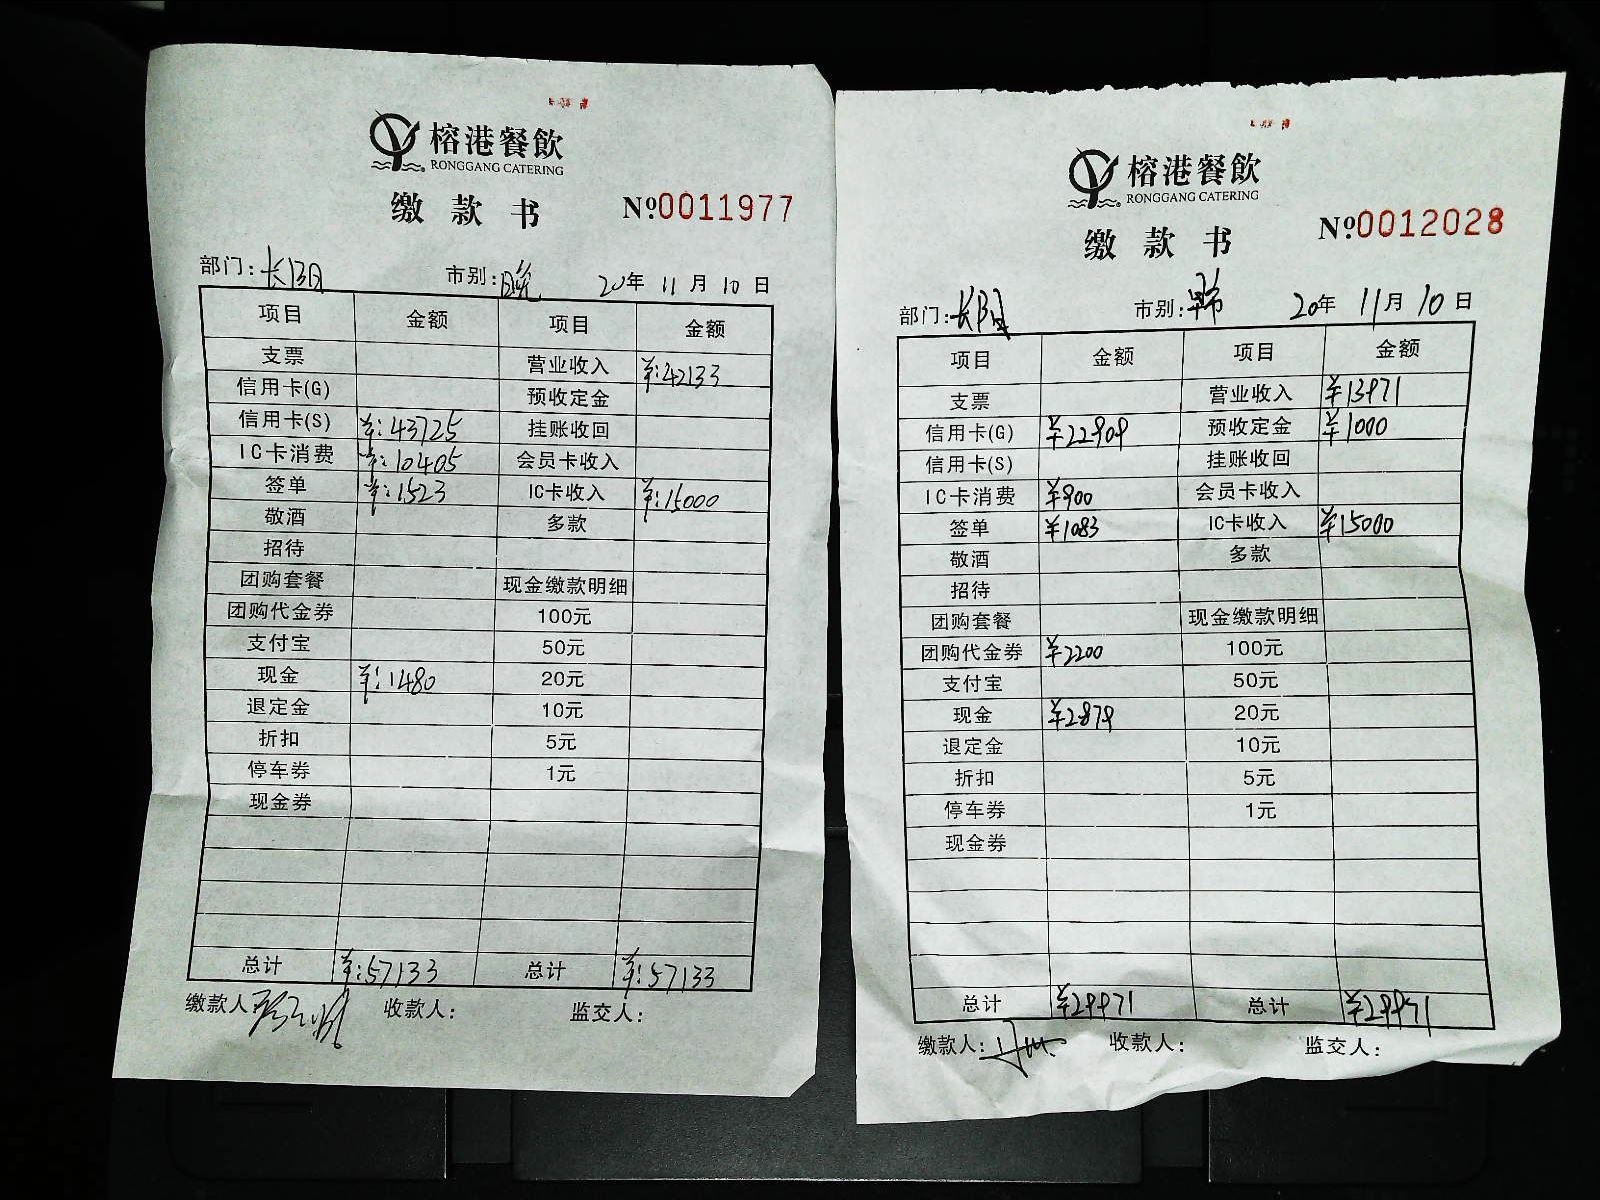 榕港餐飲
RONGGANG CATERING
缴款书 №0011977
部门: 长阳 市别: 晚 20年 11月 10日
项目 金额 项目 金额
支票 营业收入 ¥:42133
信用卡(G) 预收定金
信用卡(S) ¥:43725 挂账收回
IC卡消费 ¥:10405 会员卡收入
签单 ¥:1523 IC卡收入 ¥:15000
敬酒 多款
招待
团购套餐 现金缴款明细
团购代金券 100元
支付宝 50元
现金 ¥:1480 20元
退定金 10元
折扣 5元
停车券 1元
现金券
总计 ¥:57133 总计 ¥:57133
缴款人: 收款人: 监交人:
榕港餐飲
RONGGANG CATERING
缴款书 №0012028
部门: 长阳 市别: 早市 20年 11月 10日
项目 金额 项目 金额
支票 营业收入 ¥13971
信用卡(G) ¥22909 预收定金 ¥1000
信用卡(S) 挂账收回
IC卡消费 ¥900 会员卡收入
签单 ¥1083 IC卡收入 ¥15000
敬酒 多款
招待
团购套餐 现金缴款明细
团购代金券 ¥2200 100元
支付宝 50元
现金 ¥2879 20元
退定金 10元
折扣 5元
停车券 1元
现金券
总计 ¥29971 总计 ¥29971
缴款人: 收款人: 监交人: